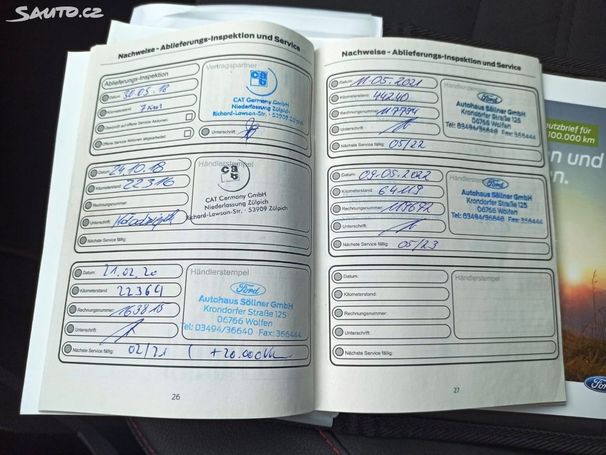 SAUTO.CZ
Nachweise - Ablieferungs-Inspektion und Service
Ablieferungs-Inspektion
Vertragspartner
Datum: 30.05.18
Kilometerstand: 7 km
Überprüft auf offene Service-Aktionen:
Offene Service-Aktionen abgearbeitet:
Unterschrift:
CAT Germany GmbH
Niederlassung Zülpich
Richard-Lawson-Str. · 53909 Zülpich
Datum: 24.10.18
Händlerstempel
Kilometerstand: 22316
Rechnungsnummer:
Unterschrift:
Nächste Service fällig:
CAT Germany GmbH
Niederlassung Zülpich
Richard-Lawson-Str. · 53909 Zülpich
Datum: 21.02.20
Händlerstempel
Kilometerstand: 22364
Rechnungsnummer: 163815
Unterschrift:
Nächste Service fällig: 02/21 ( +20.000km
Ford
Autohaus Söllner GmbH
Krondorfer Straße 125
06766 Wolfen
Tel: 03494/36640 Fax: 366444
26
Nachweise - Ablieferungs-Inspektion und Service
Datum: 11.05.2021
Händlerstempel
Kilometerstand: 44240
Rechnungsnummer: 117794
Unterschrift:
Nächste Service fällig: 05/22
Ford
Autohaus Söllner GmbH
Krondorfer Straße 125
06766 Wolfen
Tel: 03494/36640 Fax: 366444
Datum: 09.05.2022
Händlerstempel
Kilometerstand: 64119
Rechnungsnummer: 119672
Unterschrift:
Nächste Service fällig: 05/23
Ford
Autohaus Söllner GmbH
Krondorfer Straße 125
06766 Wolfen
Tel: 03494/36640 Fax: 366444
Datum:
Händlerstempel
Kilometerstand:
Rechnungsnummer:
Unterschrift:
Nächste Service fällig:
27
utzbrief für
100.000 km
en und
en.
Ford